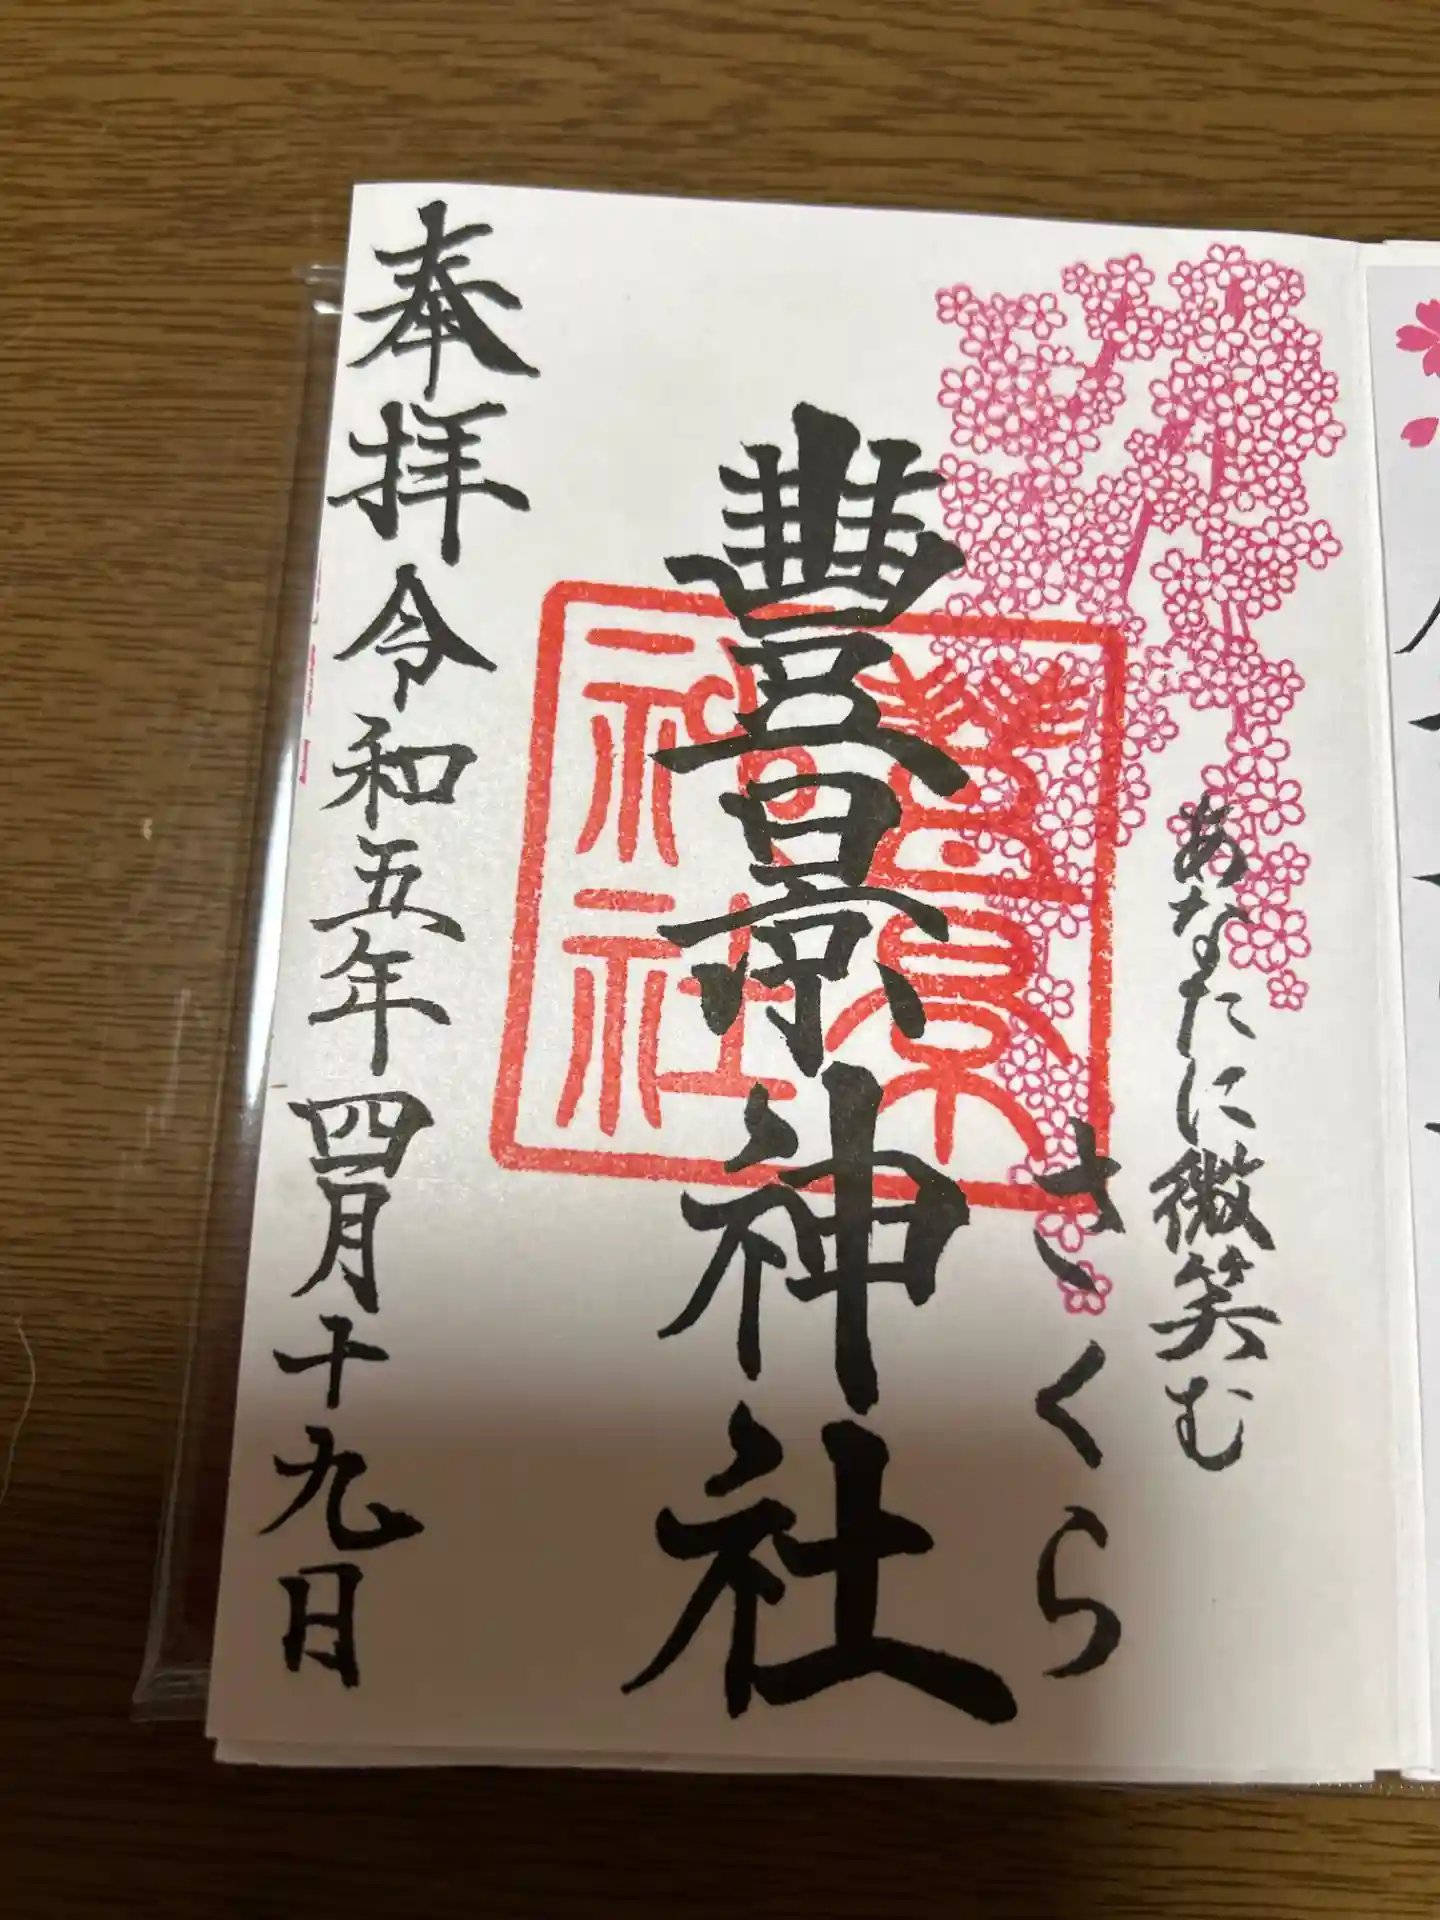 あなたに微笑む
さくら
豊景神社
豊景神社
奉拝 令和五年四月十九日